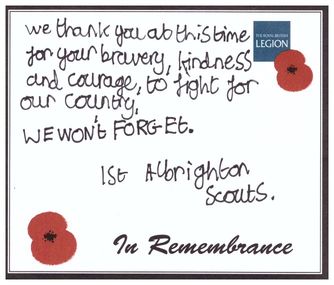 we thank you at this time
for your bravery, kindness
and courage, to fight for
our country,
WE WON'T FORGEt.
1St Albrighton
Scouts.
THE ROYAL BRITISH
LEGION
In Remembrance